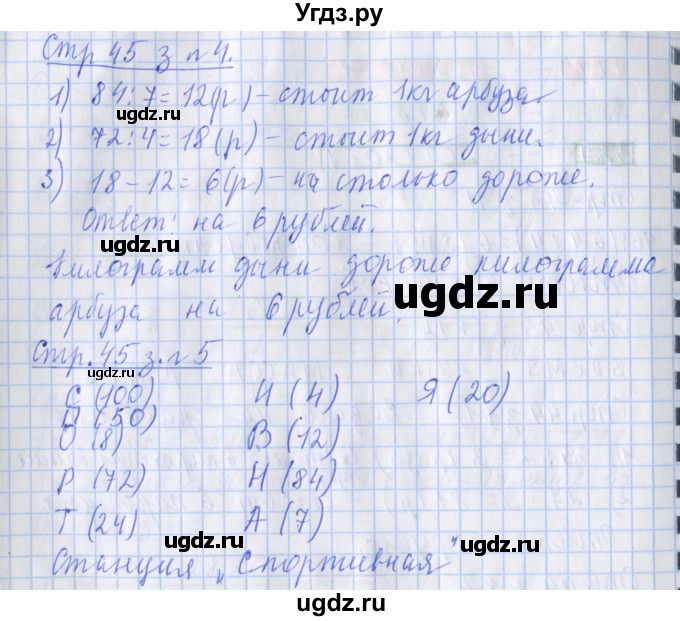 Угдз.ру
Стр 45 з №4.
1) 84:7=12(р)-стоит 1кг арбуза.
2) 72:4=18(р)-стоит 1кг дыни.
3) 18-12=6(р)-на столько дороже.
Ответ: на 6 рублей.
ugdz.ru
ugdz.ru
Килограмм дыни дороже килограмма
арбуза на 6 рублей.
ugdz.ru
Стр. 45 з. №5
ugdz.ru
С (100) И (4) Я (20)
П (50)
О (8) В (12)
Р (72) Н (84)
Т (24) А (7)
ugdz.ru
ugdz.ru
ugdz.ru
Станция "Спортивная"
ugdz.ru